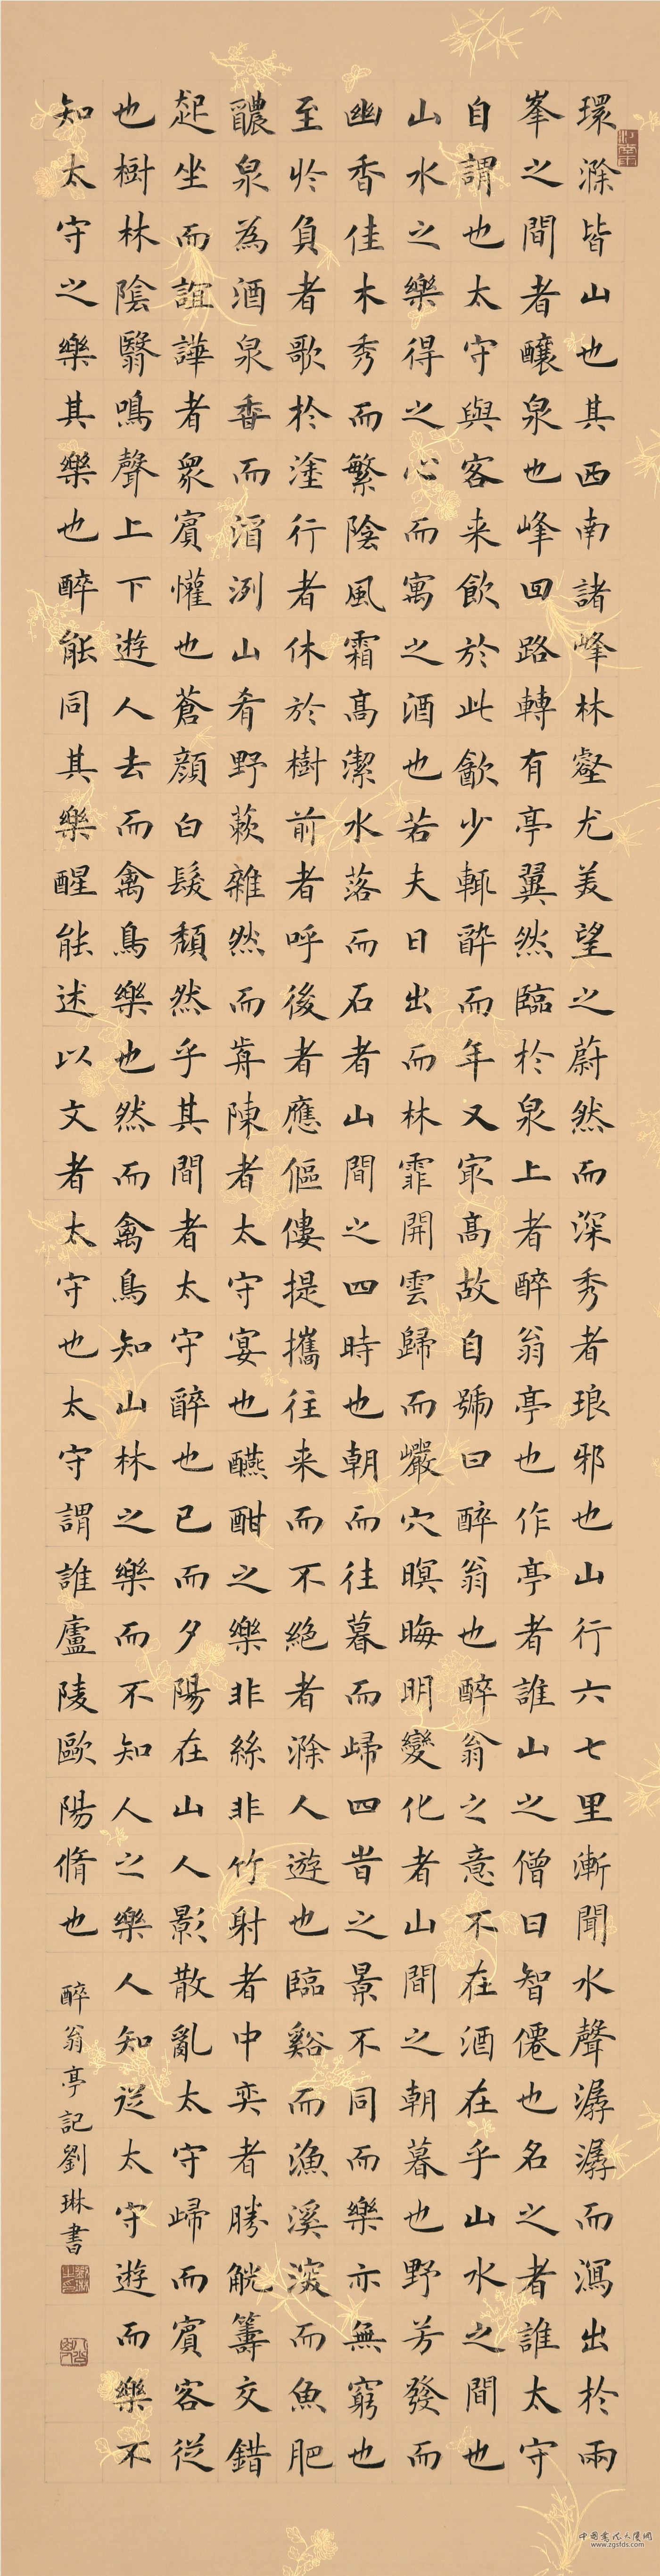 環滁皆山也其西南諸峰林壑尤美望之蔚然而深秀者琅邪也山行六七里漸聞水聲潺潺而瀉出於兩
峯之間者釀泉也峰回路轉有亭翼然臨於泉上者醉翁亭也作亭者誰山之僧曰智僊也名之者誰太守
自謂也太守與客来飲於此㱃少輒醉而年又冣高故自號曰醉翁也醉翁之意不在酒在乎山水之間也
山水之樂得之心而寓之酒也若夫日出而林霏開雲歸而巖穴暝晦明變化者山間之朝暮也野芳發而
幽香佳木秀而繁陰風霜高潔水落而石者山間之四時也朝而往暮而歸四旹之景不同而樂亦無窮也
至於負者歌於塗行者休於樹前者呼後者應傴僂提攜往来而不絕者滁人遊也臨谿而漁溪深而魚肥
醲泉為酒泉香而酒洌山肴野蔌雜然而歬陳者太守宴也醼酣之樂非絲非竹射者中奕者勝觥籌交錯
起坐而諠譁者眾賓懽也蒼顏白髮頹然乎其間者太守醉也已而夕陽在山人影散亂太守歸而賓客從
也樹林陰翳鳴聲上下遊人去而禽鳥樂也然而禽鳥知山林之樂而不知人之樂人知從太守遊而樂不
知太守之樂其樂也醉能同其樂醒能述以文者太守也太守謂誰廬陵歐陽脩也
醉翁亭記劉琳書
中国書法大厦網
www.zgsfds.com